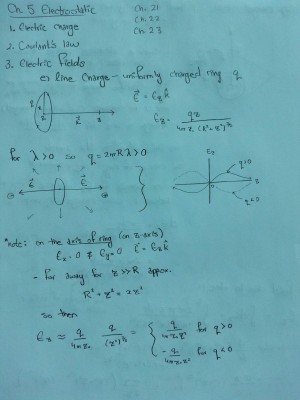 Ch. 5 Electrostatic
Ch. 21
1. Electric charge
Ch. 22
2. Coulomb's law
Ch. 23
3. Electric Fields
e) line charge - uniformly charged ring q
E = E_z k
R
z
E_z = qz / 4πε₀ (R²+z²)^3/2
for λ>0 so q = 2πRλ>0
E
E
E_z
q>0
z
q<0
*note: on the axis of ring (on z-axis)
E_x = 0 & E_y = 0 E = E_z k
- Far away for z>>R approx.
R² + z² ≈ z²
so then
E_z ≈ q / 4πε₀ z / (z²)^3/2 = { q / 4πε₀z² for q>0
- q / 4πε₀z² for q<0